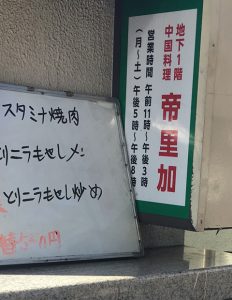 地下1階
中国料理
帝里加
営業時間 午前11時〜午後3時
(月〜土) 午後5時〜午後8時
スタミナ焼肉
とりニラもやしメン
とりニラもやし炒め